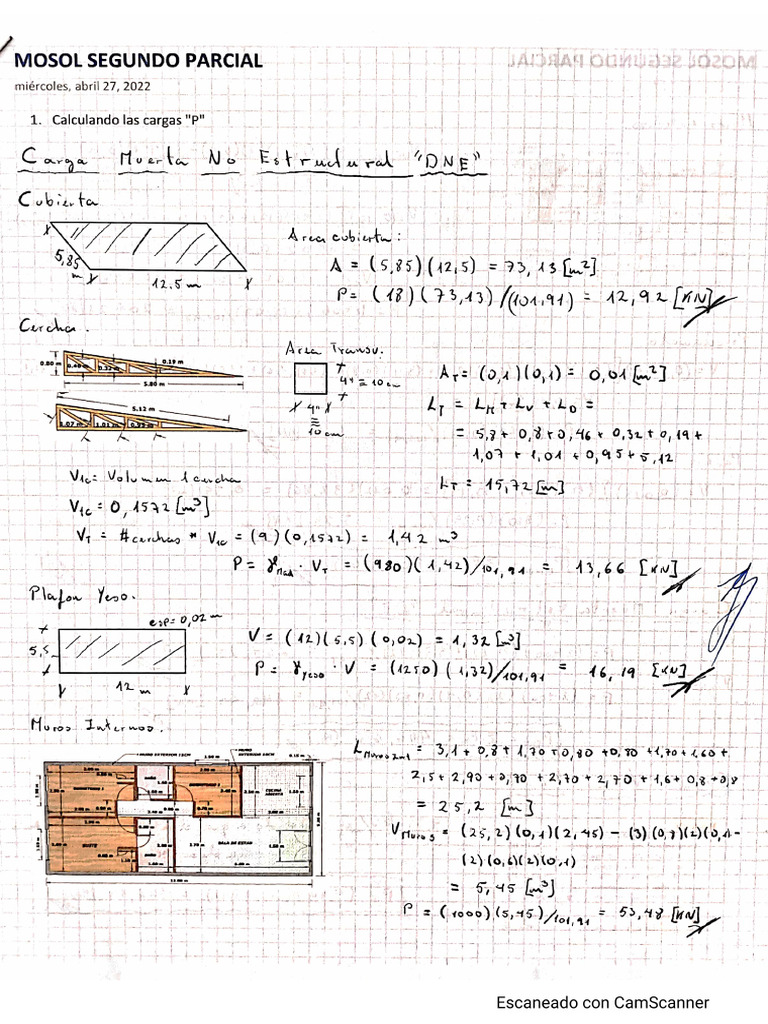 MOSOL SEGUNDO PARCIAL
miércoles, abril 27, 2022
1. Calculando las cargas "P"
Carga Muerta No Estructural "DNE"
Cubierta
5,85 m
12.5 m
Area cubierta:
A = (5,85)(12,5) = 73,13 [m²]
P = (18)(73,13)/(101,91) = 12,92 [KN]
Cercha.
0.80 m
0.46 m
0.32 m
0.19 m
5.80 m
5.12 m
1.07 m
1.01 m
0.95 m
Area Transv.
4" ≅ 10 cm
4" ≅ 10 cm
A_T = (0,1)(0,1) = 0,01 [m²]
L_T = L_H + L_V + L_D =
= 5,8 + 0,8 + 0,46 + 0,32 + 0,19 +
1,07 + 1,01 + 0,95 + 5,12
L_T = 15,72 [m]
V1c = Volumen 1 cercha
V1c = 0,1572 [m³]
V_T = #cerchas * V1c = (9)(0,1572) = 1,42 m³
P = γmad · V_T = (980)(1,42)/101,91 = 13,66 [KN]
Plafon Yeso.
esp=0,02 m
5,5
12 m
V = (12)(5,5)(0,02) = 1,32 [m³]
P = γyeso · V = (1250)(1,32)/101,91 = 16,19 [KN]
Muros Internos.
MURO EXTERIOR 15CM
MURO INTERIOR 10CM
DORMITORIO 2
BAÑO
COCINA ABIERTA
SUITE
BAÑO
SALA DE ESTAR
12.00 m
L Muros Int = 3,1 + 0,8 + 1,70 + 0,80 + 0,80 + 1,70 + 1,60 +
2,5 + 2,90 + 0,70 + 2,70 + 2,70 + 1,6 + 0,8 + 0,8
= 25,2 [m]
V Muros = (25,2)(0,1)(2,45) - (3)(0,8)(2)(0,1 -
(2)(0,6)(2)(0,1)
= 5,45 [m³]
P = (1000)(5,45)/101,91 = 53,48 [KN]
Escaneado con CamScanner